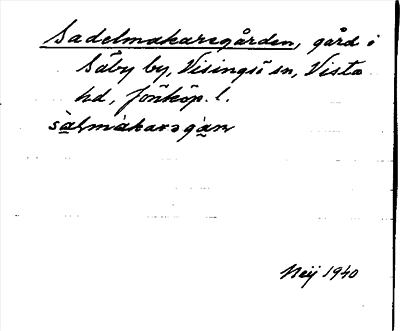 Sadelmakaregården, gård i
Säby by, Visingsö sn, Vista
hd, Jönköp. l.
sàḷmàkarəgàn
Neij 1940